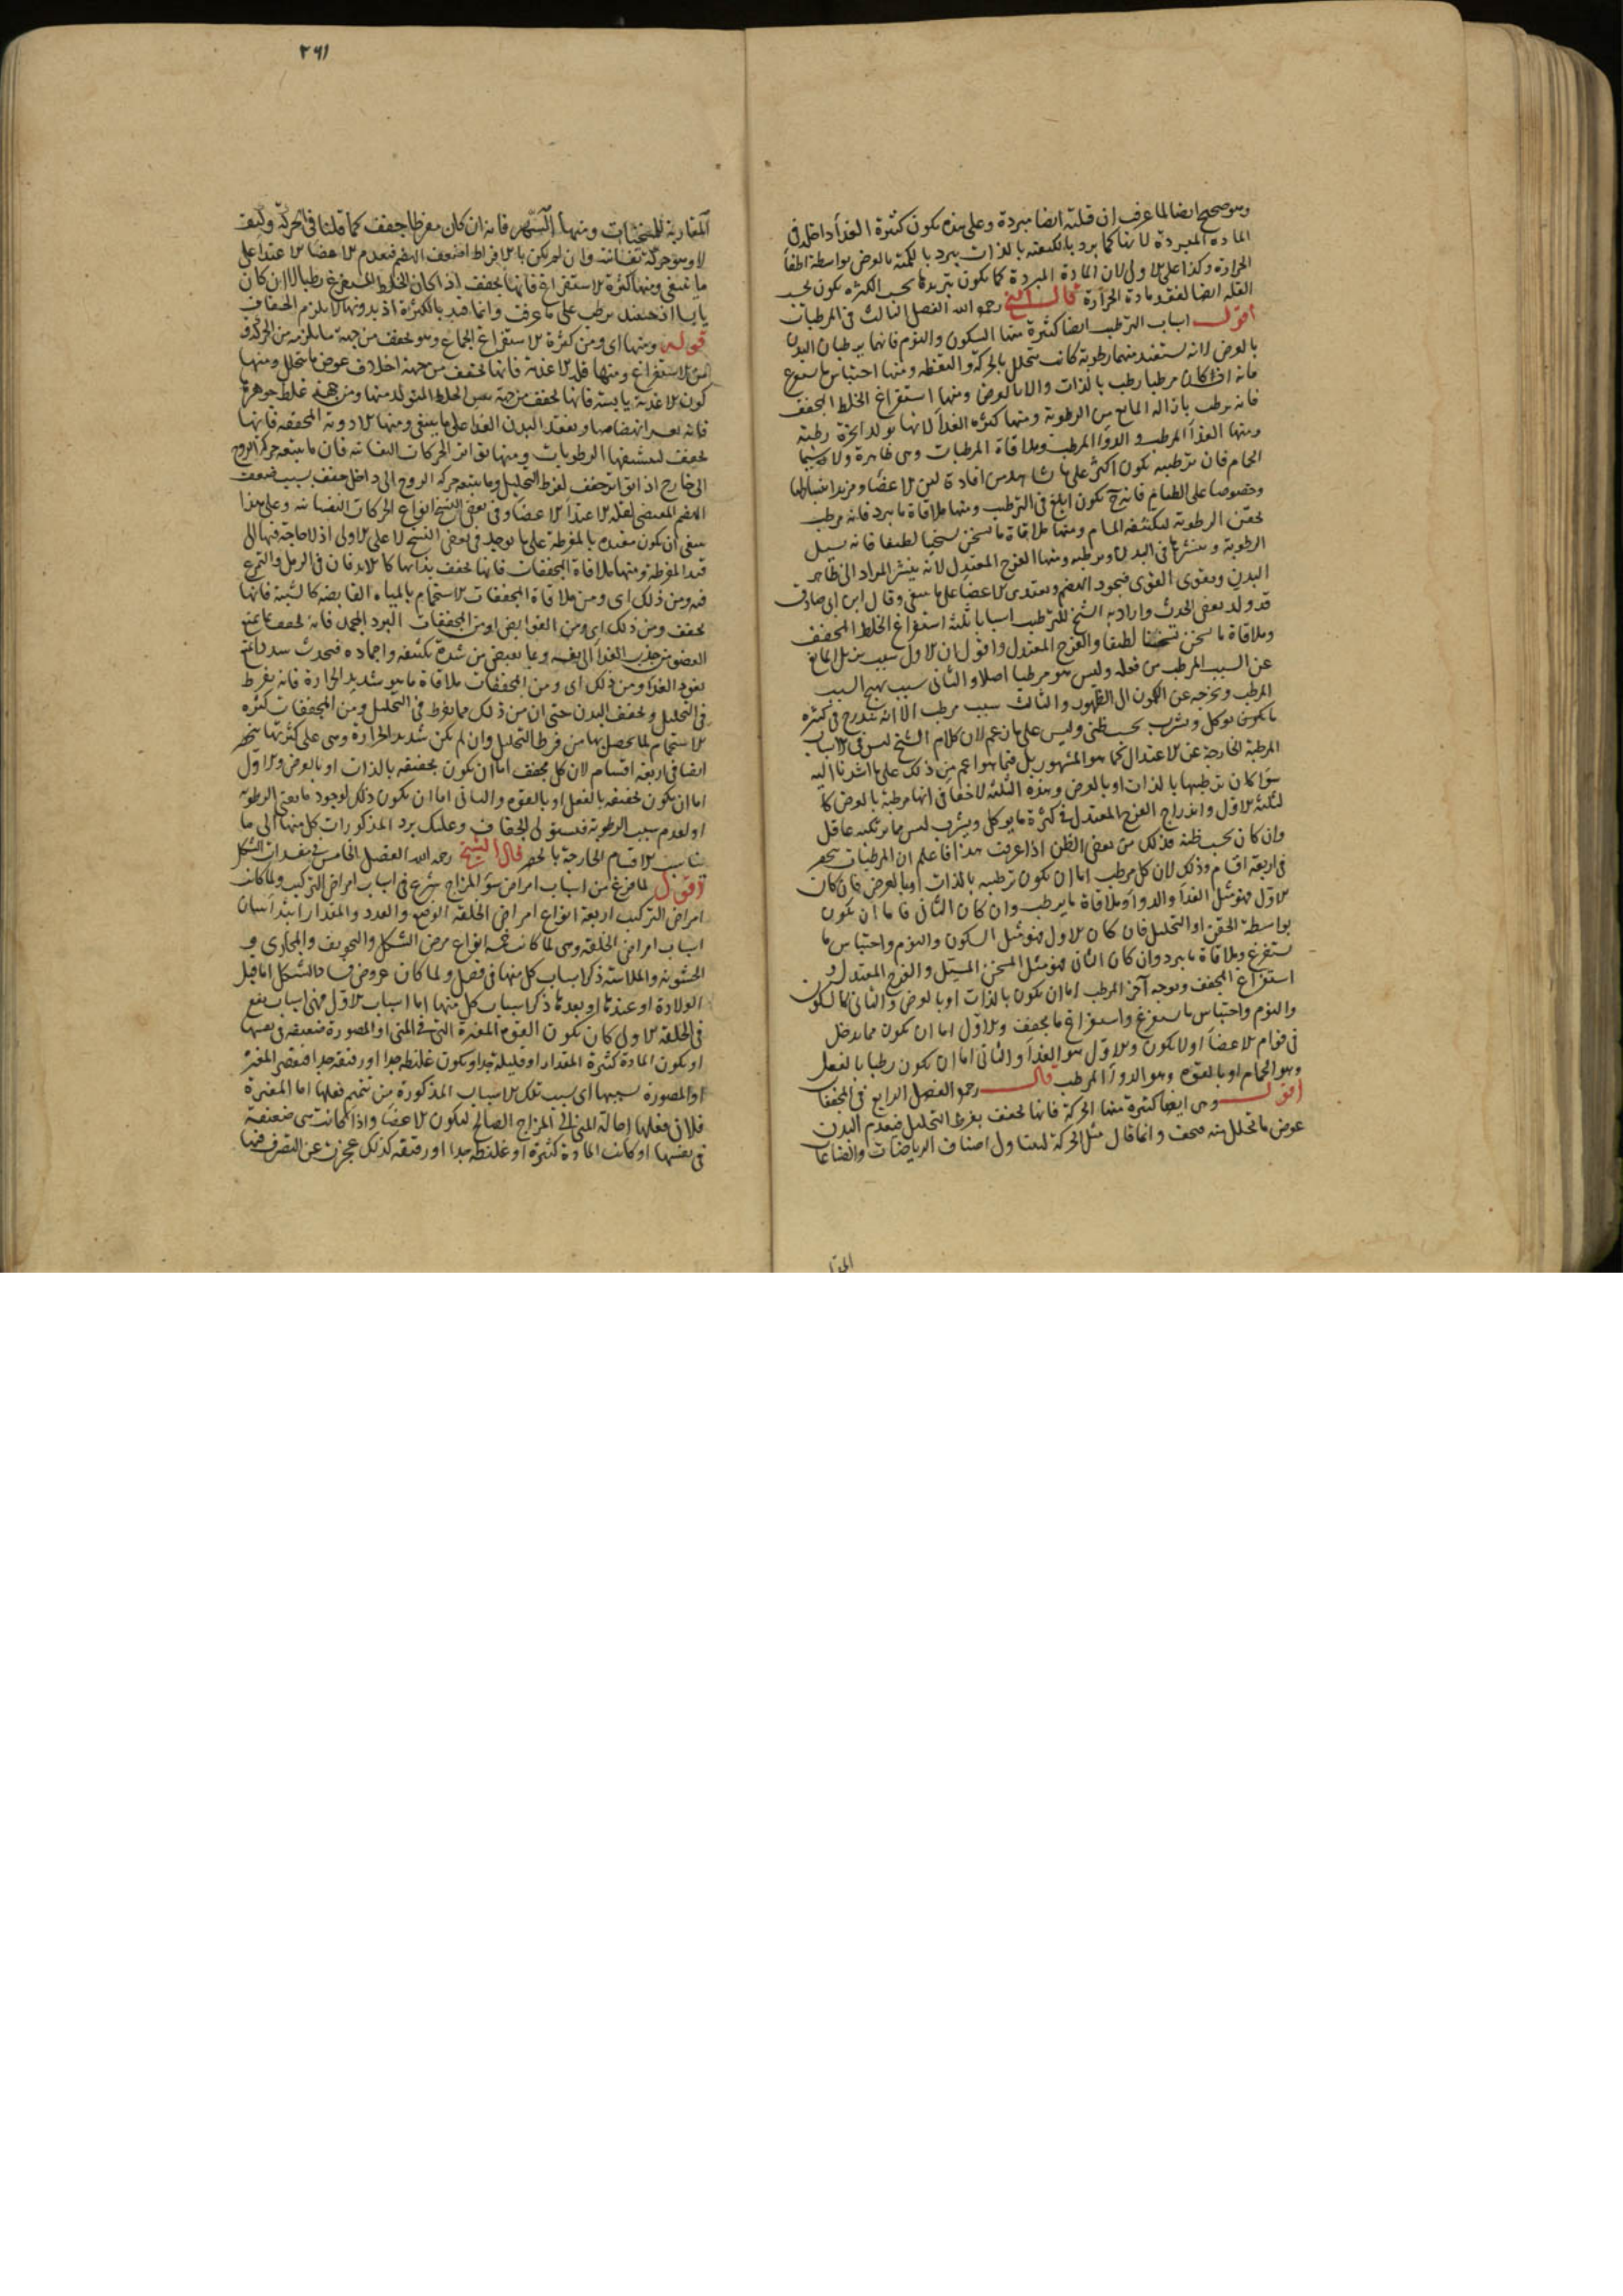 وهو صحيح ايضا لما عرف ان قلته ايضا مبردة وعلى هذه يكون كثرة الغذآ داخلة فى
المادة المبردة لانها كما يبرد بالكيفية بالذات يبرد بالكمية بالعرض بواسطة اطفآ
الحرارة وكذا على الاول لان المادة المبردة كما يكون تبريدها بحسب الكثرة يكون بحسب
القلة ايضا لفقد مادة الحرارة قال الشيخ رحمه الله الفصل الثالث فى المرطبات
اقول اسباب الترطيب ايضا كثيرة منها السكون والنوم فانهما يرطبان البدن
بالعرض لانه يستفيد منهما رطوبة كانت تتحلل بالحركة واليقظة ومنها احتباس ما يستفرغ
فانه اذا كان مرطبا رطب بالذات والا بالعرض ومنها استفراغ الخلط المجفف
فانه يرطب بازالة المانع من الرطوبة ومنها كثرة الغذآ لانها تولد ابخرة رطبة
ومنها الغذآ المرطب والدوآ المرطب وملاقاة المرطبات وهى ظاهرة ولا سيما
الحمام فان ترطيبه يكون اكثر على ما شاهد من افادة لين الاعضآ ومزيد انبساطها
وخصوصا على الطعام فانه ح يكون ابلغ فى الترطيب ومنها ملاقاة ما يبرد فانه يرطب
بحقن الرطوبة لتكثيفه المسام ومنها ملاقاة ما يسخن تسخينا لطيفا فانه يسيل
الرطوبة وينشرها فى البدن ويرطبه ومنها الفرح المعتدل لانه ينشر المواد الى ظاهر
البدن ويقوى القوى فيجود الهضم ويغتذى الاعضآ على ما ينبغى وقال ابن ابى صادق
قد ولد بعض الحدث واراد به الشيخ للترطيب اسبابا ثلثة استفراغ الخلط المجفف
وملاقاة ما يسخن تسخينا لطيفا والفرح المعتدل واقول ان الاول سبب مزيل المانع
عن السبب المرطب من فعله وليس هو مرطبا اصلا والثانى سبب يهيج السبب
المرطب ويخرجه عن الكمون الى الظهور والثالث سبب مرطب الا انه يندرج فى كثرة
ما يكون يوكل ويشرب بحسب ظنى وليس على ما زعم لان كلام الشيخ ليس فى الاسباب
المرطبة الخارجة عن الاعتدال كما هو المشهور بل فيما هو اعم من ذلك على ما اشرنا اليه
سوآ كان ترطيبها بالذات او بالعرض وهذه الثلثة لا خفآ فى انها مرطبة بالعرض كما
لثلثة الاول واندراج الفرح المعتدل فى كثرة ما يوكل ويشرب ليس مما يرتكبه عاقل
وان كان بحسب ظنه فذلك من بعض الظن اذا عرفت هذا فاعلم ان المرطبات ينحصر
فى اربعة اقسام وذلك لان كل مرطب اما ان يكون ترطيبه بالذات او بالعرض فان كان
الاول فهو مثل الغذآ والدوآ وملاقاة ما يرطب وان كان الثانى فاما ان يكون
بواسطة الحقن او التحليل فان كان الاول فهو مثل السكون والنوم واحتباس ما
يستفرغ وملاقاة ما يبرد وان كان الثانى فهو مثل المسخن المسيل والفرح المعتدل و
استفراغ المجفف وبوجه آخر المرطب اما ان يكون بالذات او بالعرض والثانى كالسكون
والنوم واحتباس ما يستفرغ واستفراغ ما يجفف والاول اما ان يكون مما يدخل
فى قوام الاعضآ او لا يكون والاول هو الغذآ والثانى اما ان يكون رطبا بالفعل
وهو الحمام او بالقوة وهو الدوآ المرطب قال رحمه الفصل الرابع فى المجففات
اقول وهى ايضا كثيرة منها الحركة فانها تجفف بفرط التحليل فيعدم البدن
عوض ما تحلل منه فيجف وانما قال مثل الحركة ليتناول اصناف الرياضات والصناعات
المقا
٢٦١
المقاربة للمسخنات ومنها السهر فانه ان كان مفرطا جفف كما قلنا فى الحركة وكيف
لا وهو حركة نفسانية وان لم يكن بالافراط اضعف الهضم فيعدم الاعضآ الاغتذآ على
ما ينبغى ومنها كثرة الاستفراغ فانها تجفف اذا كان الخلط المستفرغ رطبا لا ان كان
يابسا اذ حينئذ يرطب على ما عرفت وانما قيد بالكثرة اذ بدونها لا يلزم الجفاف
قوله ومنها اى ومن كثرة الاستفراغ الجماع وهو يجفف من جهة ما يلزمه من الحركة و
من الاستفراغ ومنها قلة الاغذية فانها تجفف من جهة اخلاف عوض ما يتحلل ومنها
كون الاغذية يابسة فانها تجفف من جهة يبس الخلط المتولد منها ومن جهة غلظ جوهرها
فانه يعسر انهضامها ويفقد البدن الغذآ على ما ينبغى ومنها الادوية المجففة فانها
تجفف لتنشيفها الرطوبات ومنها تواتر الحركات النفسانية فان ما يتبعه حركة الروح
الى خارج اذا تواتر جفف لفرط التحليل وما يتبعه حركة الروح الى داخل جفف بسبب ضعف
الهضم المقتضى لقلة اغتذآ الاعضآ وفى بعض النسخ انواع الحركات النفسانية وعلى هذا
ينبغى ان يكون مقيدة بالمفرطة على ما يوجد فى بعض النسخ لا على الاولى اذ لا حاجة فيها الى
قيد المفرطة ومنها ملاقاة المجففات فانها تجفف بذاتها كالاندفان فى الرمل والتمرغ
فيه ومن ذلك اى ومن ملاقاة المجففات الاستحمام بالمياه القابضة كالشبية فانها
تجفف ومن ذلك اى ومن القوابض او من المجففات البرد المجمد فانه يجفف بما يمنع
العضو من جذب الغذآ الى نفسه وبما يعرض من شدة تكثيفه واجماده فيحدث سدد مانعة
نفوذ الغذآ ومن ذلك اى ومن المجففات ملاقاة ما هو شديد الحرارة فانه يفرط
فى التحليل وتجفف البدن حتى ان من ذلك مما يفرط فى التحليل ومن المجففات كثرة
الاستحمام لما يحصل بها من فرط التحليل وان لم يكن شديد الحرارة وهى على كثرتها ينحصر
ايضا فى اربعة اقسام لان كل مجفف اما ان يكون تجفيفه بالذات او بالعرض والاول
اما ان يكون تجفيفه بالفعل او بالقوة والثانى اما ان يكون ذلك لوجود ما يفنى الرطوبة
او لعدم سبب الرطوبة فيستولى الجفاف وعليك برد المذكورات كل منها الى ما
يناسب الاقسام الخارجة بالحصر قال الشيخ رحمه الله الفصل الخامس فى مفسدات الشكل
اقول لما فرغ من اسباب امراض سوء المزاج شرع فى اسباب امراض التركيب ولما كانت
امراض التركيب اربعة انواع امراض الخلقة الوضع والعدد والمقدار ابتدآ ببيان
اسباب امراض الخلقة وهى لما كانت خمسة انواع مرض الشكل والتجويف والمجارى و
الخشونة والملاسة ذكر اسباب كل منها فى فصل ولما كان عروض فساد الشكل اما قبل
الولادة او عندها او بعدها ذكر اسباب كل منها اما اسباب الاول فهى اسباب يقع
فى الخلقة الاولى كان يكون القوة المغيرة التى فى المنى او المصورة ضعيفة فى نفسها
او يكون المادة كثيرة المقدار او قليلة جدا او يكون غليظة جدا او رقيقة جدا فيقصر المغيرة
او المصورة بسببها اى بسبب تلك الاسباب المذكورة من تتميم فعلها اما المغيرة
فلان فعلها احالة المنى الى المزاج الصالح لتكون الاعضآ واذا كانت هى ضعيفة
فى نفسها او كانت المادة كثيرة او غليظة جدا او رقيقة كذلك عجزت عن التصرف فيها